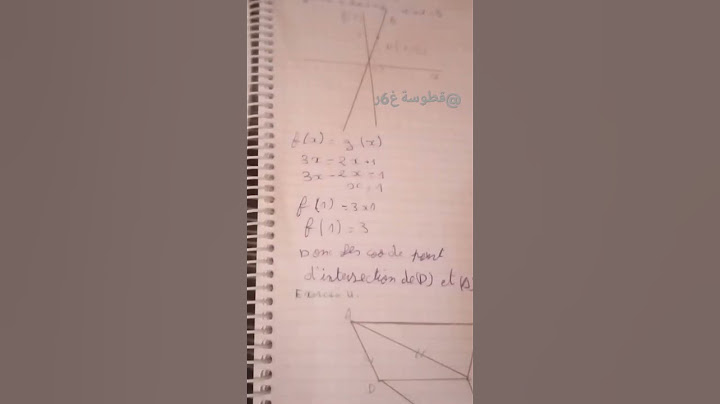 @قطوسة غ6ر
f(x) = g(x)
3x = 2x+1
3x - 2x = 1
x = 1
f(1) = 3x1
f(1) = 3
Donc les coo de point
d'intersection de (D) et
Exercice 4
A
D